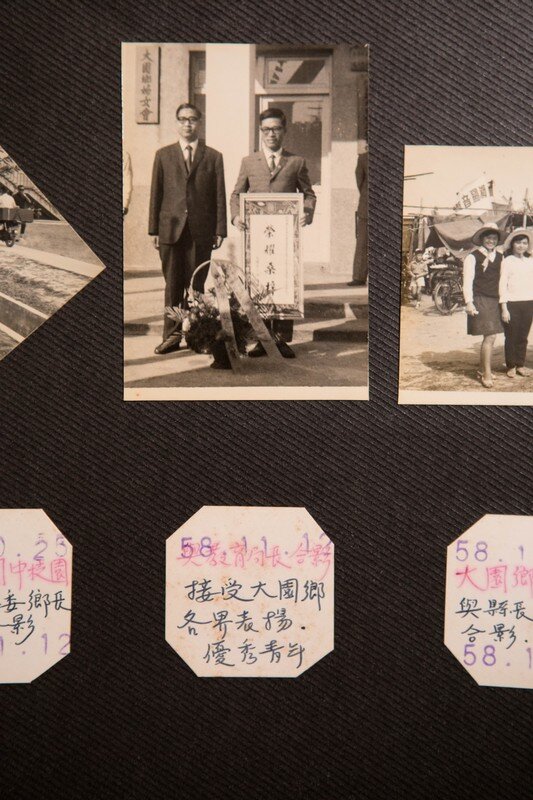 大園鄉婦女會
榮耀桑梓
0.25
中校園
委鄉長
影
1.12
58.11.12
與教育局長合影
接受大園鄉
各界表揚.
優秀青年
58.1
大園鄉
與縣長
合影.
58.1